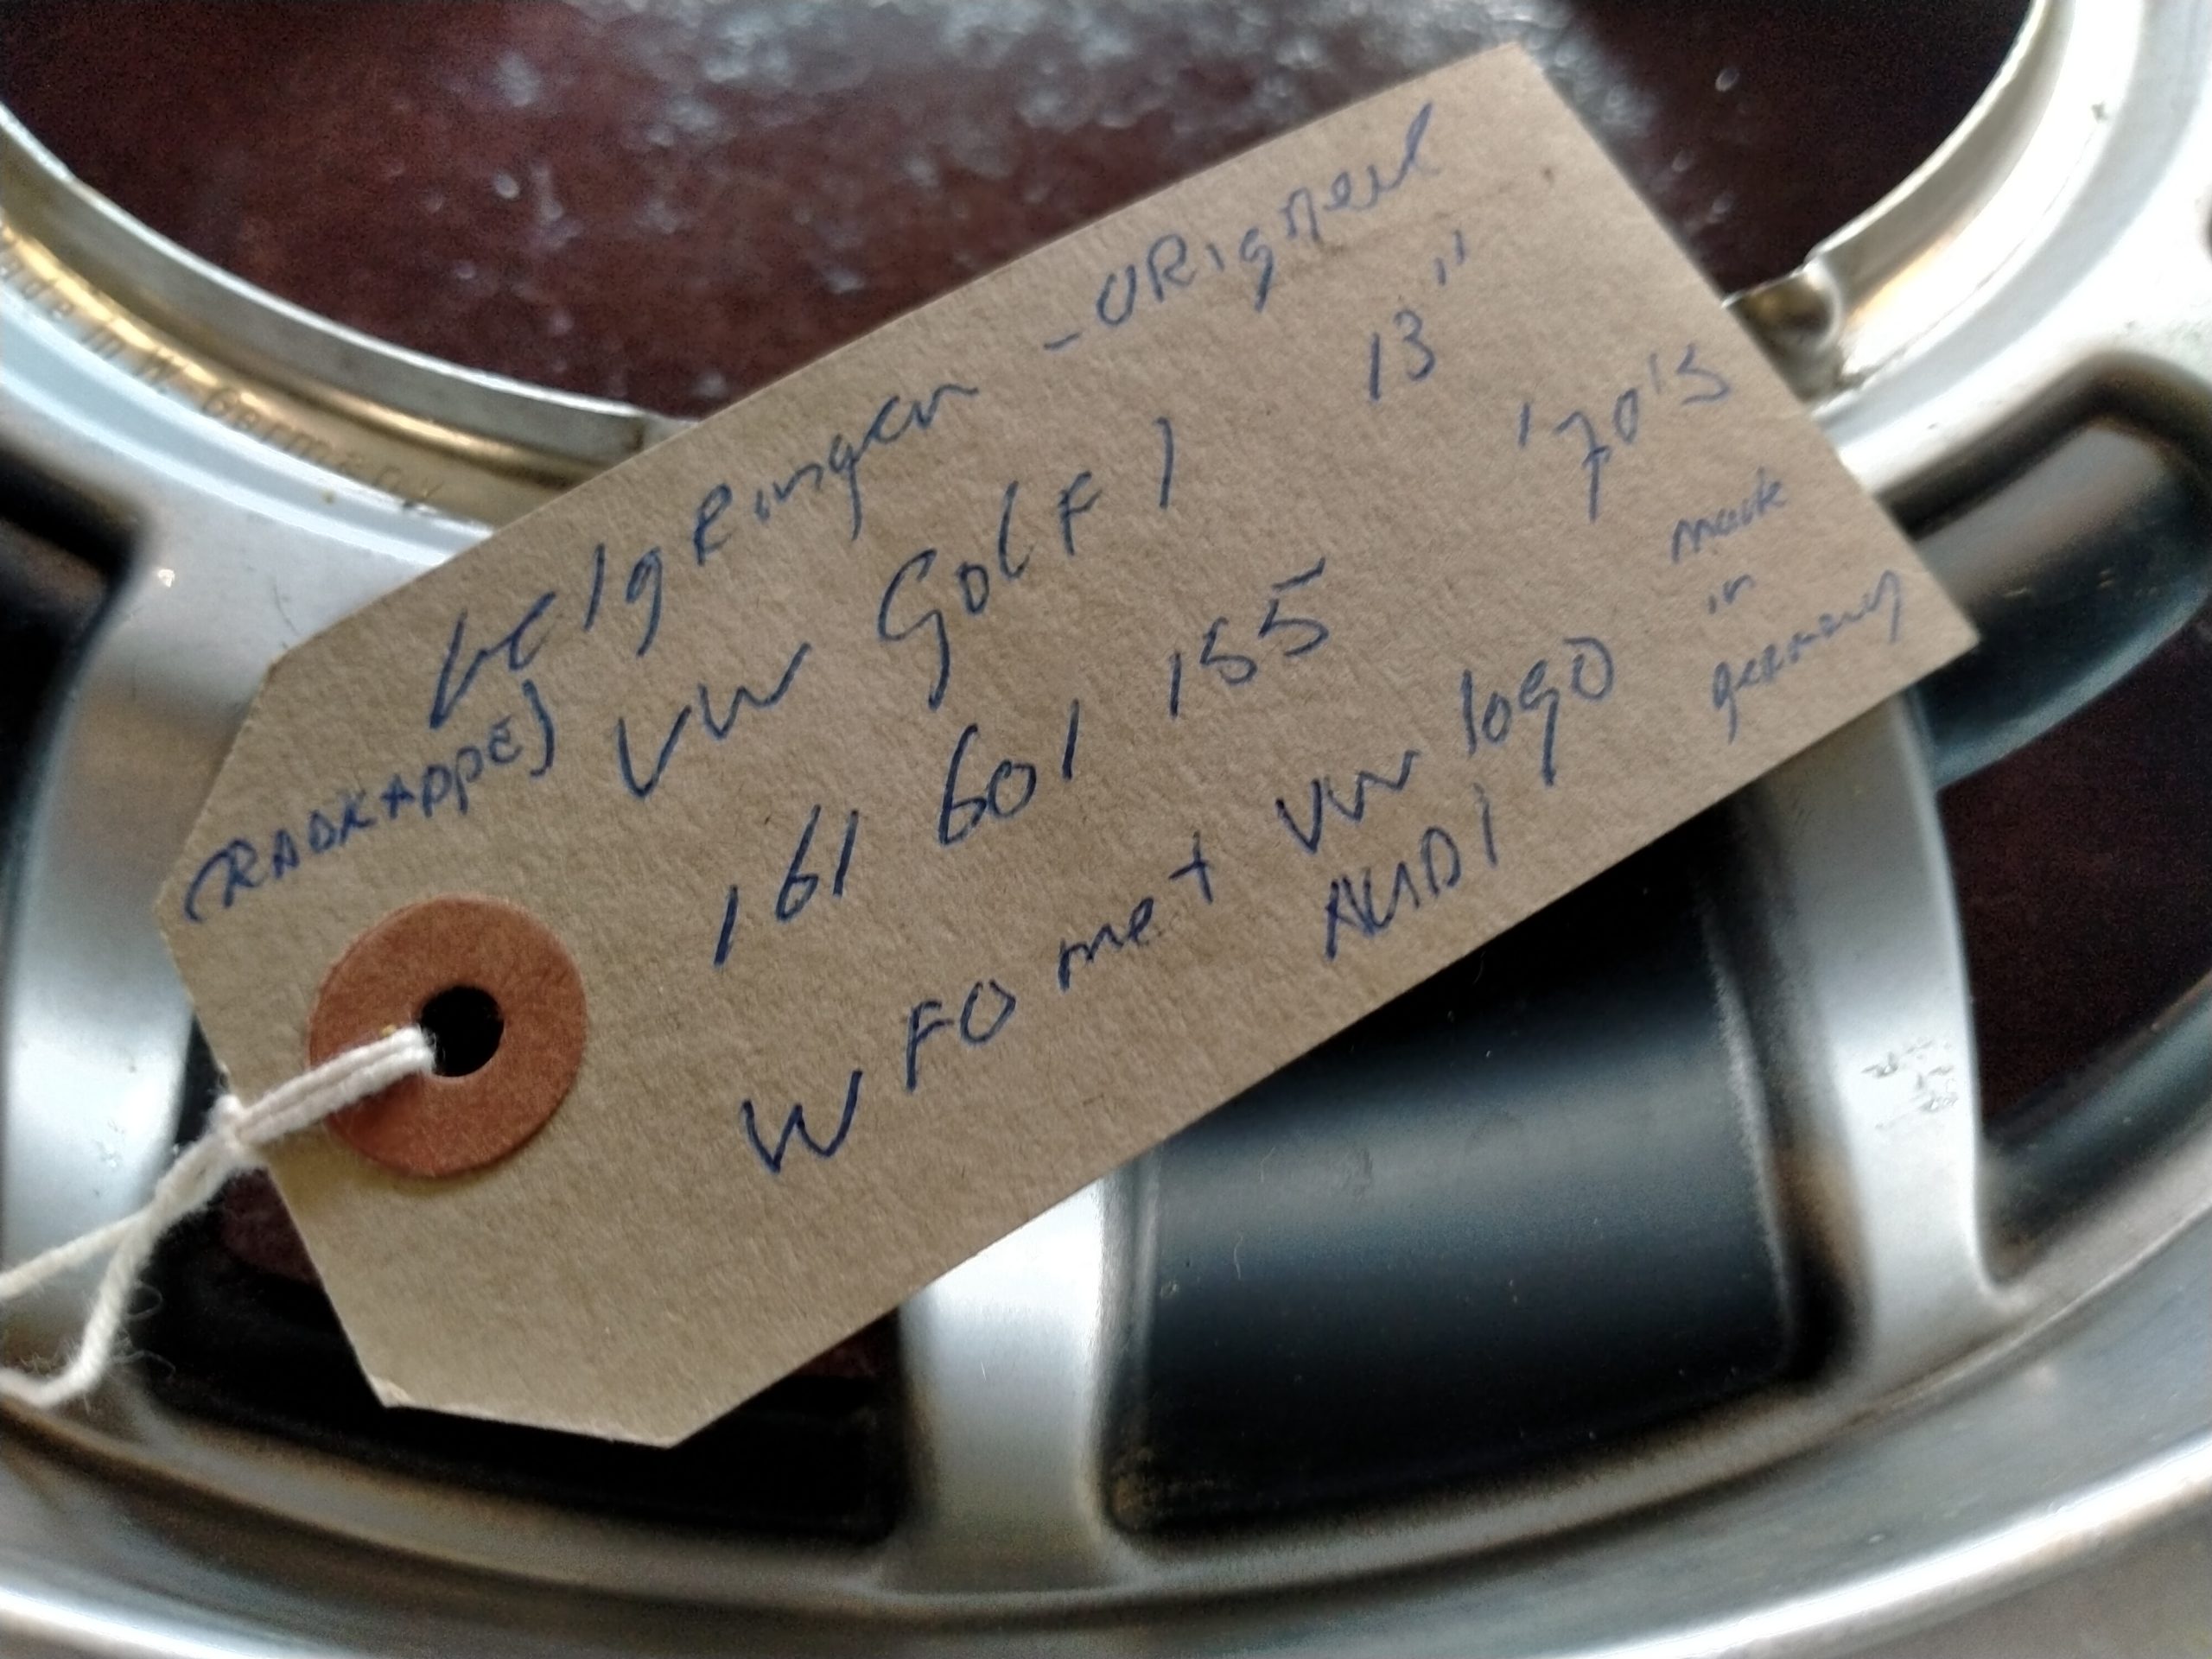 velgRingen - ORigneel
(RADKAPPE) VW GOLF 1 13"
161 601 155 '70's
W FO met VW logo made
AUDI in
germany
Made in W. Germany